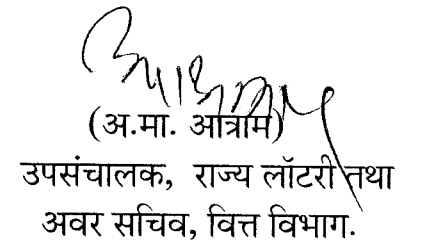 (अ.मा. आत्राम)
उपसंचालक, राज्य लॉटरी तथा
अवर सचिव, वित्त विभाग.